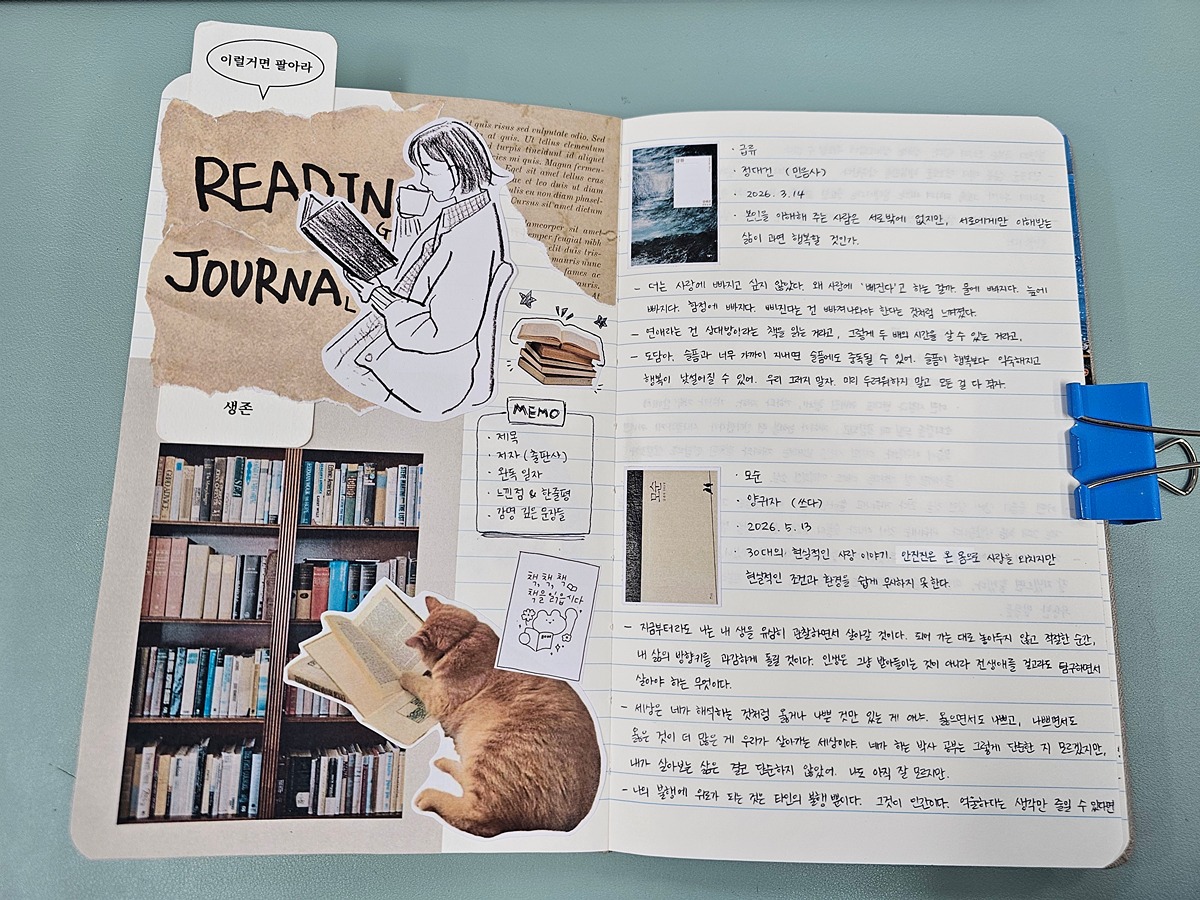 이럴거면 팔아라
READING
JOURNAL
생존
at quis risus sed vulputate odio. Sed
at quis. Ut tellus elementum
turpis tincidunt id aliquet
cies mi quis. Magna fermen-
Eget sit amet tellus cras
ac et leo duis ut diam
alis en non diam phasel-
Cursus sit amet dictum
amcorper sit amet
mper feugiat nibh
elit duis tris-
mauris nunc
fames ac
MEMO
· 제목
· 저자 (출판사)
· 완독 일자
· 느낀점 & 한줄평
· 감명 깊은 문장들
책, 책, 책
책을 읽읍시다
BOOK
· 급류
· 정대건 (민음사)
· 2026. 3. 14
· 본인을 이해해 주는 사람은 서로밖에 없지만, 서로에게만 이해받는
삶이 과연 행복할 것인가.
- 더는 사랑에 빠지고 싶지 않았다. 왜 사랑에 '빠진다'고 하는 걸까. 물에 빠지다. 늪에
빠지다. 함정에 빠지다. 빠진다는 건 빠져나와야 한다는 것처럼 느껴졌다.
- 연애라는 건 상대방이라는 책을 읽는 거라고, 그렇게 두 배의 시간을 살 수 있는 거라고,
- 도담아, 슬픔과 너무 가까이 지내면 슬픔에도 중독될 수 있어. 슬픔이 행복보다 익숙해지고
행복이 낯설어질 수 있어. 우리 그러지 말자. 미리 두려워하지 말고 모든 걸 다 겪자.
모순
· 모순
· 양귀자 (쓰다)
· 2026. 5. 13
· 30대의 현실적인 사랑 이야기. 안진진은 온 몸으로 사랑을 외치지만
현실적인 조건과 환경을 쉽게 무시하지 못한다.
- 지금부터라도 나는 내 생을 유심히 관찰하면서 살아갈 것이다. 되어 가는 대로 놓아두지 않고 적절한 순간,
내 삶의 방향키를 과감하게 돌릴 것이다. 인생은 그냥 받아들이는 것이 아니라 전생애를 걸고라도 탐구하면서
살아야 하는 무엇이다.
- 세상은 네가 해석하는 것처럼 옳거나 나쁜 것만 있는 게 아냐. 옳으면서도 나쁘고, 나쁘면서도
옳은 것이 더 많은 게 우리가 살아가는 세상이야. 네가 하는 박사 공부는 그렇게 단순한 지 모르겠지만,
내가 살아보는 삶은 결코 단순하지 않았어. 나도 아직 잘 모르지만.
- 나의 불행에 위로가 되는 것은 타인의 불행 뿐이다. 그것이 인간이다. 억울하다는 생각만 줄일 수 있다면